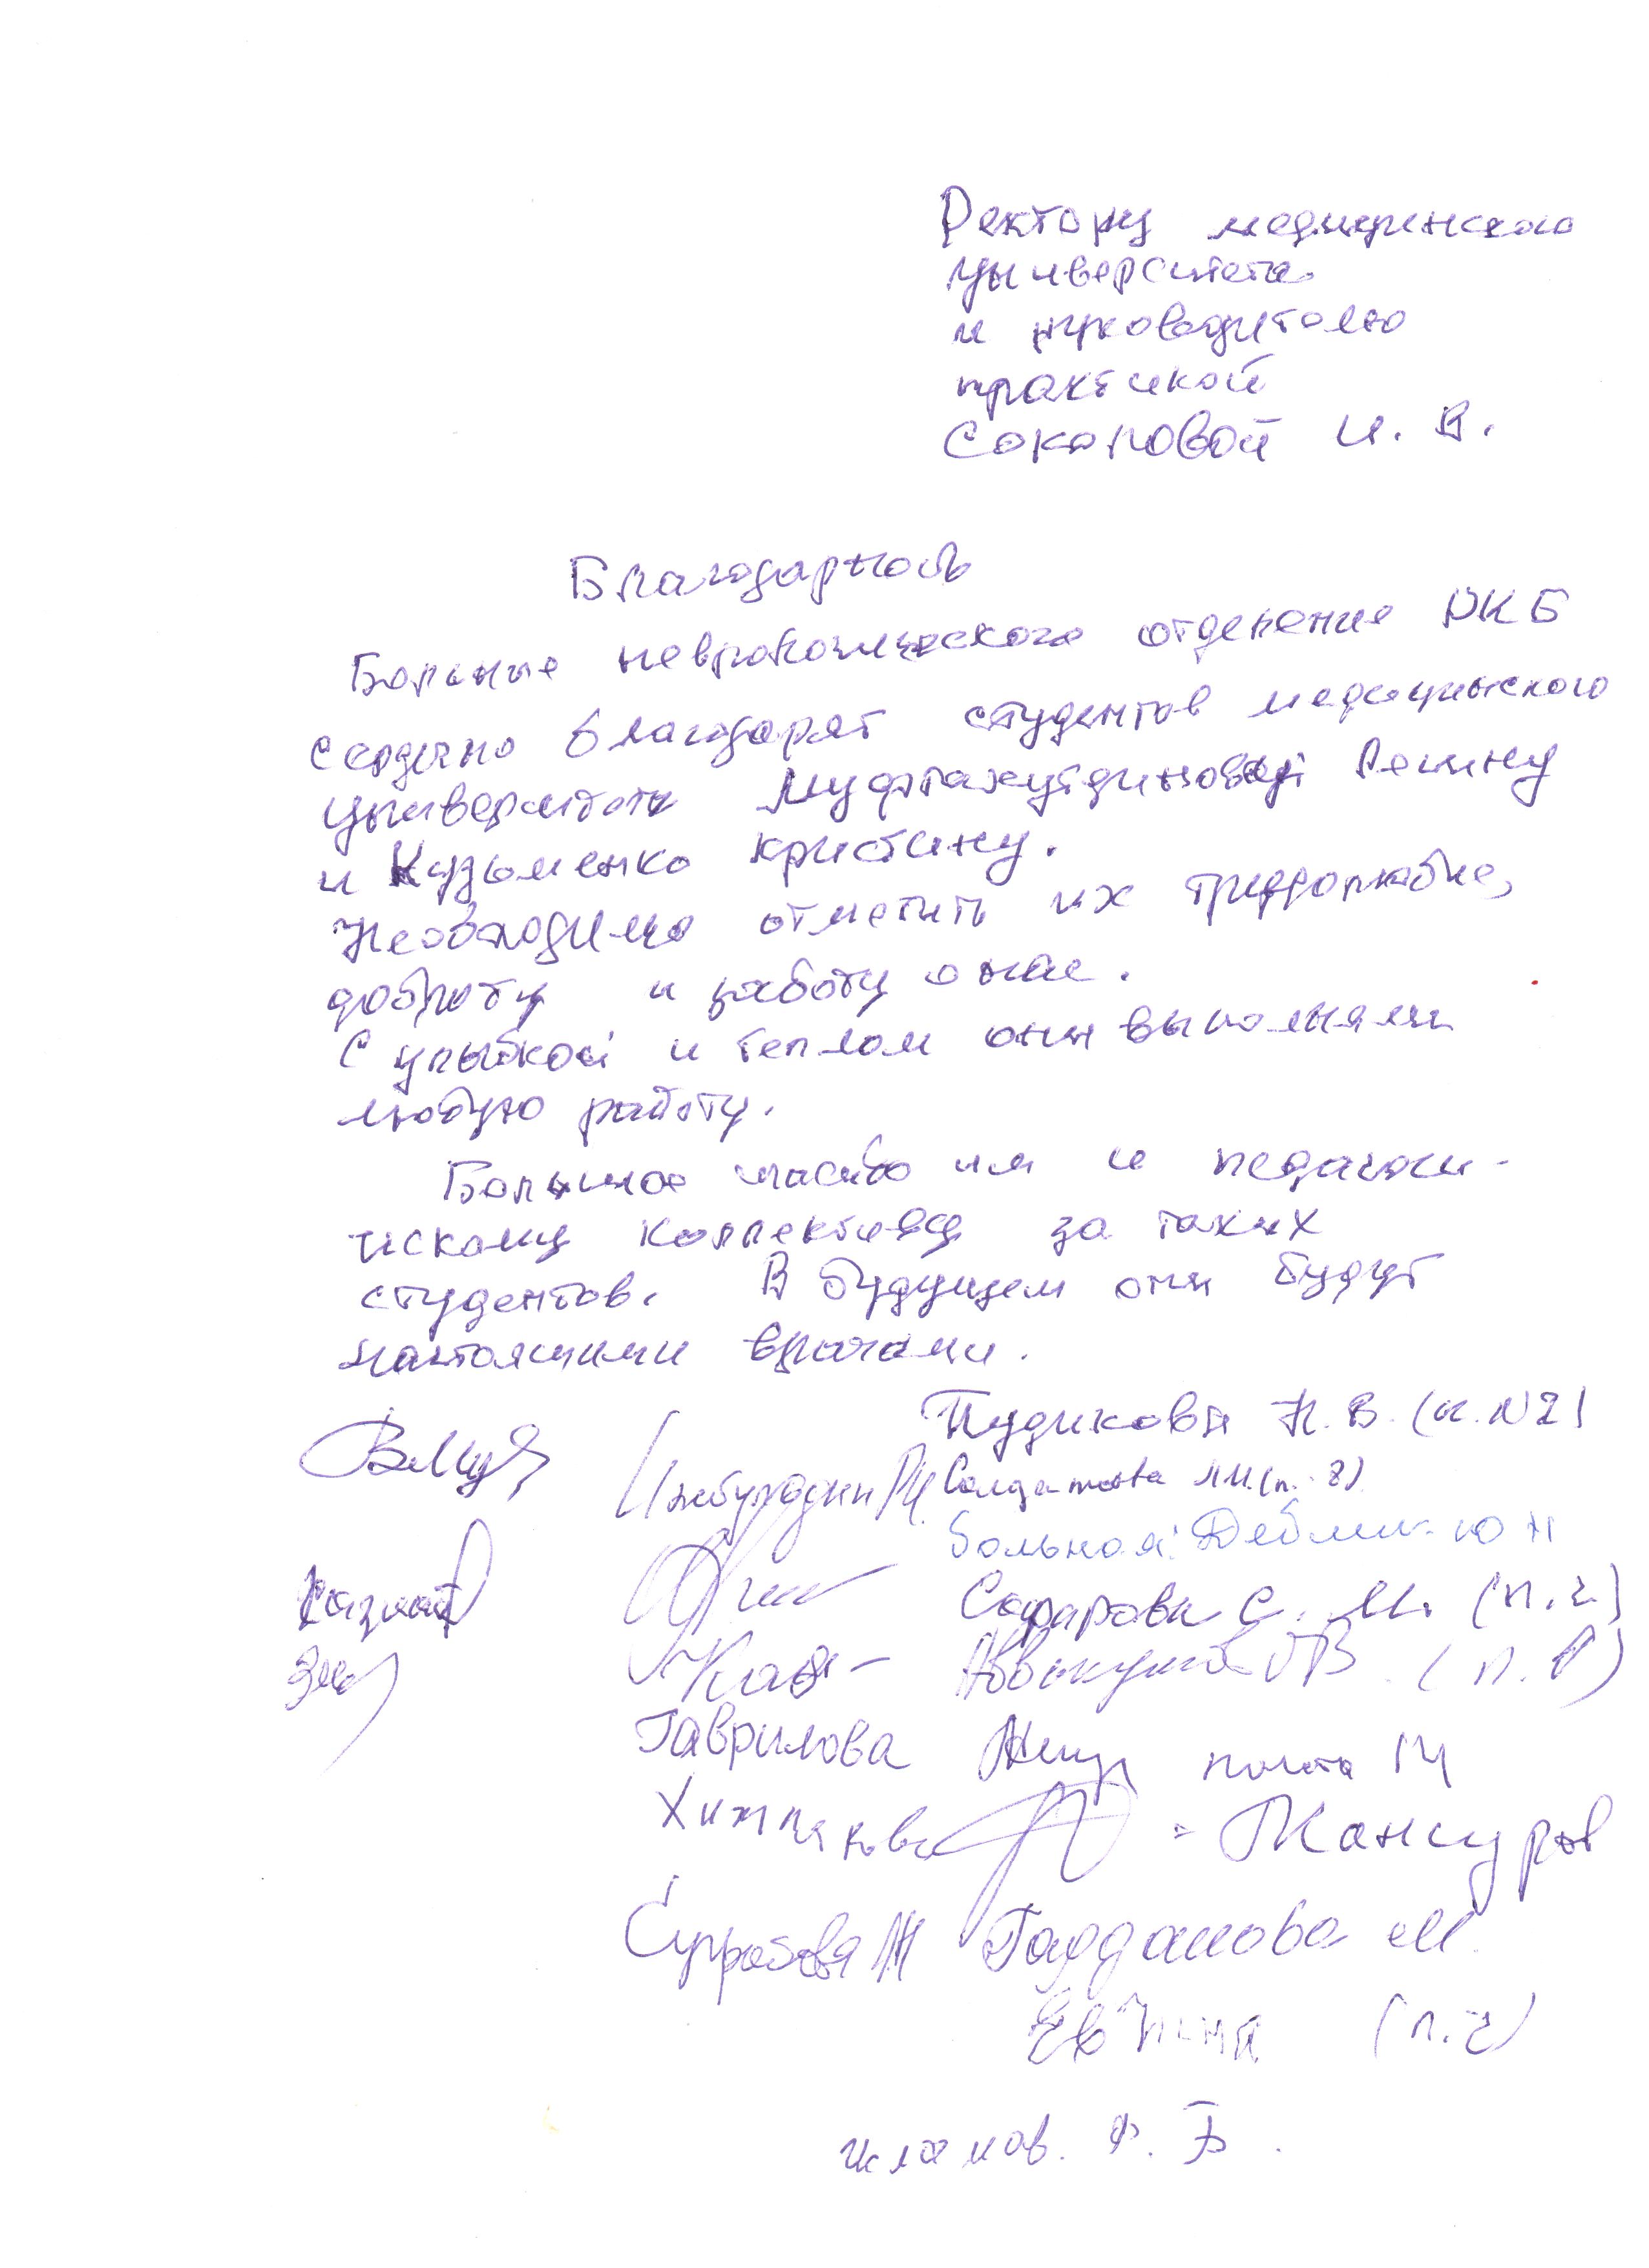 Ректору медицинского
университета
и руководителю
практикой
Соколовой И. В.
Благодарность
Больные неврологического отделения РКБ
сердечно благодарят студентов медицинского
университета Муфтахутдинову Регину
и Кузьменко Кристину.
Необходимо отметить их трудолюбие,
доброту и заботу о нас.
С улыбкой и теплом они выполняли
любую работу.
Большое спасибо им и педагоги-
ческому коллективу за таких
студентов. В будущем они будут
настоящими врачами.
Пудикова Н. В. (п. N2)
Солдатова Л.И. (п. 8)
больной:
Сафарова С. М. (п. 2)
(п.
Гаврилова палата 14
Мансуров
М.
(п. 2)
Исламов. Ф. Б.